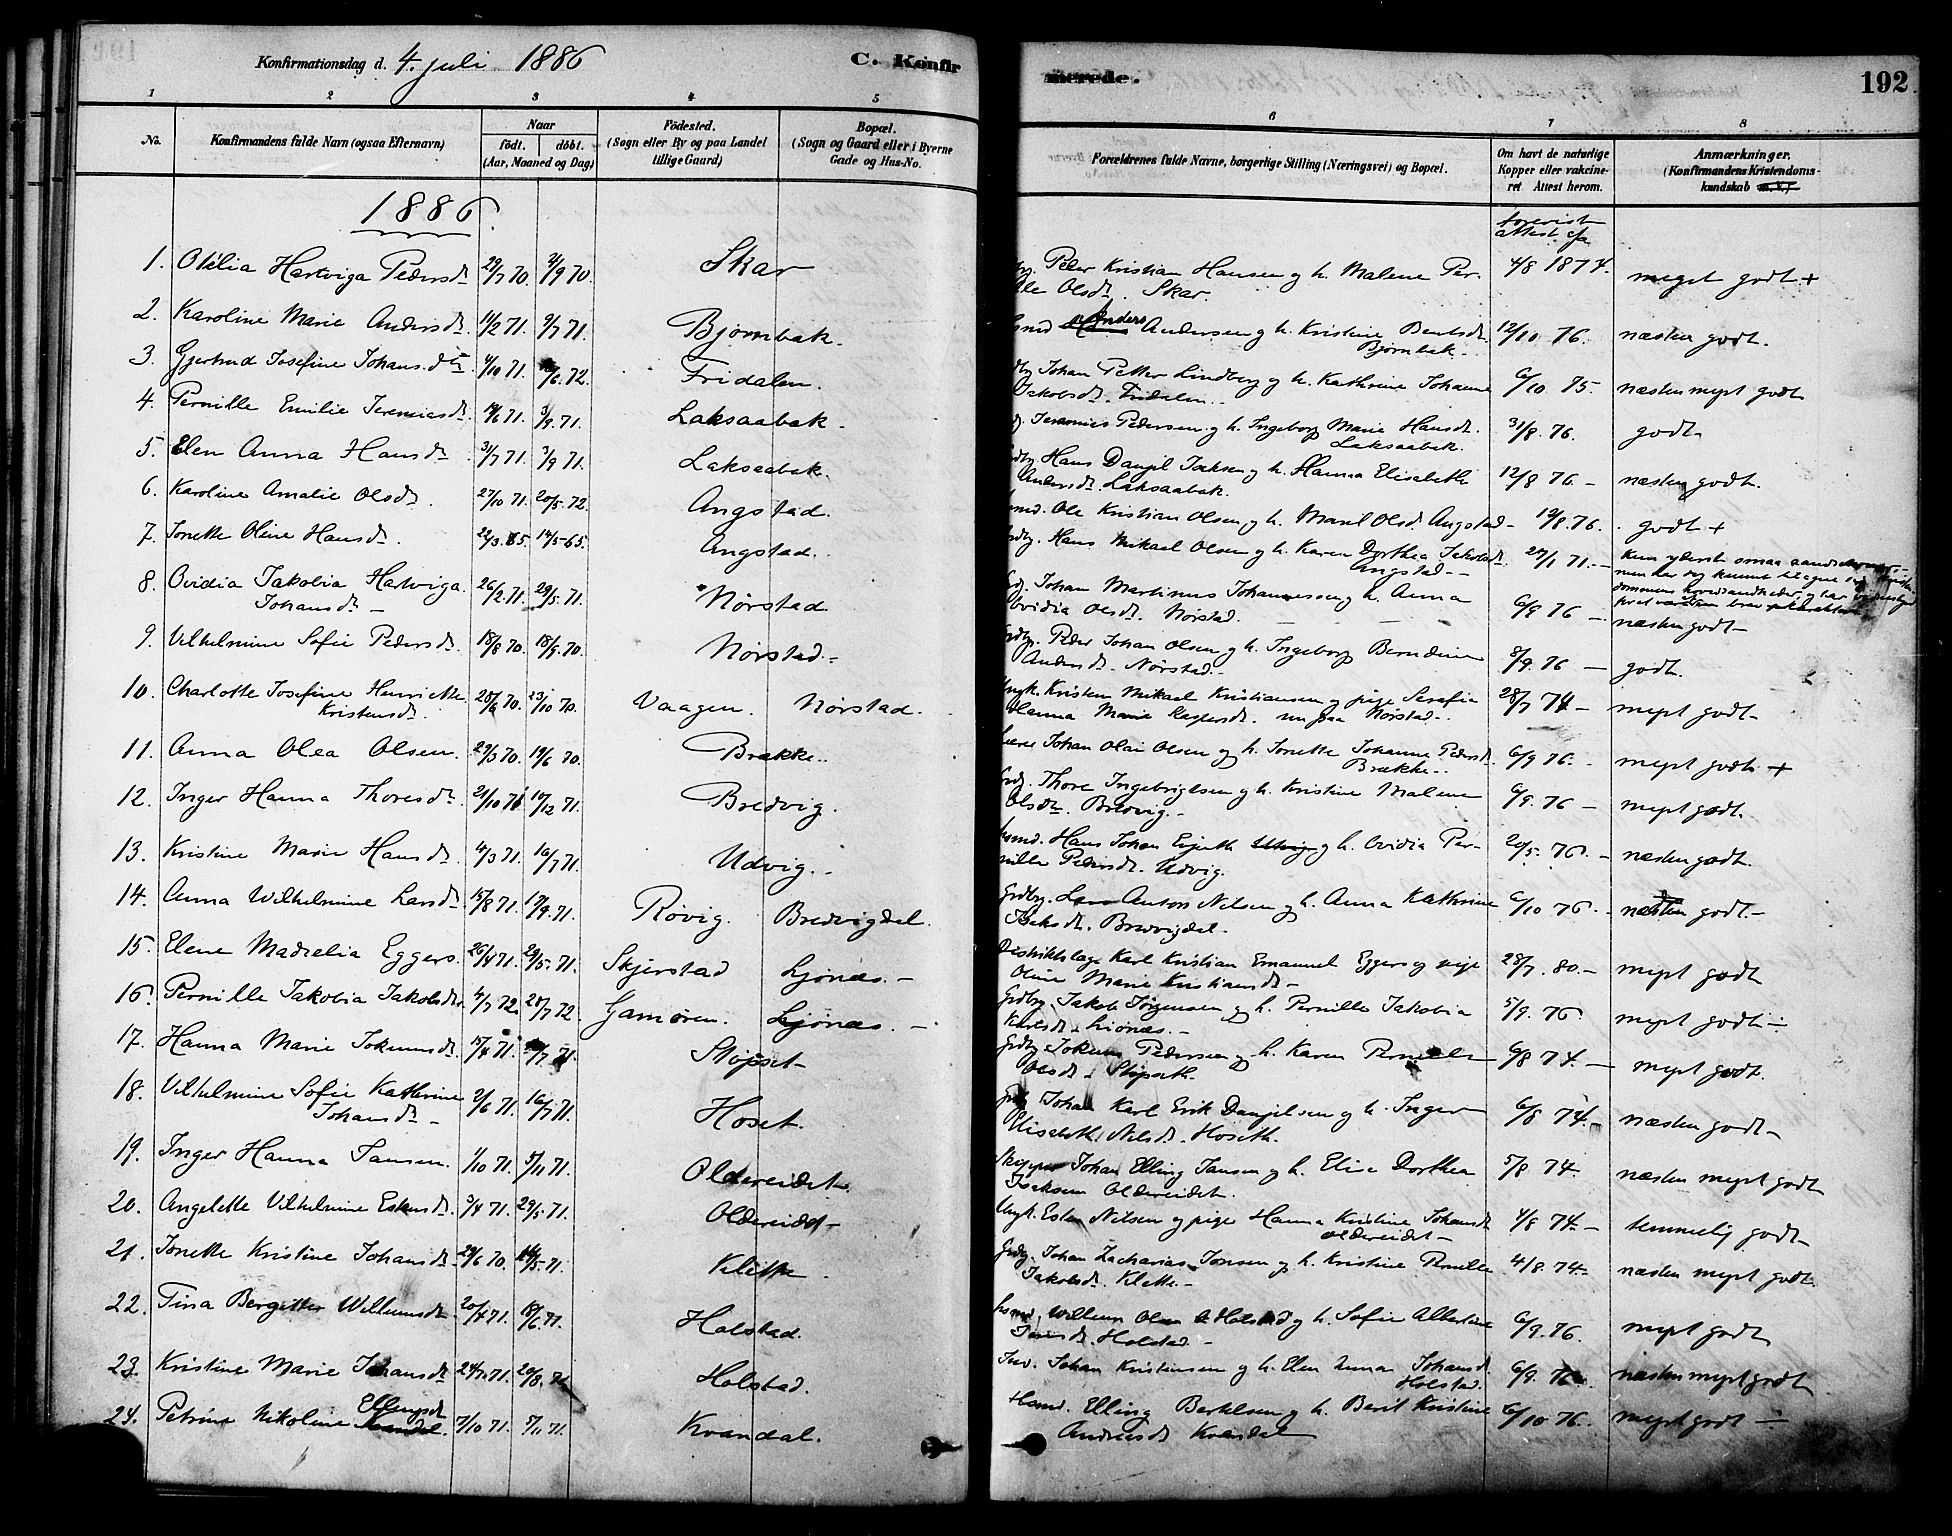 Konfirmationsdag d. 4. juli 1886 C. Konfir
merede. 192
1 2 3 4 5
6 7 8
No. Konfirmandens fulde Navn (ogsaa Efternavn) Naar födt. döbt. (Aar, Maaned og Dag) Födested. (Sogn eller By og paa Landet tillige Gaard) Bopæl. (Sogn og Gaard eller i Byerne Gade og Hus-No.
Forældrenes fulde Navne, borgerlige Stilling (Næringsvei) og Bopæl. Om havt de naturlige Kopper eller vakcineret. Attest herom. Anmærkninger. (Konfirmandens Kristendomskundskab
1886
forevist attest
1. Otilia Hartviga Pedersd. 29/7 70. 4/9 70. Skar
Peder Kristian Hansen og h. Malene Per-
Olsd. Skar. 4/8 1874. meget godt +
2. Karoline Marie Andersd. 11/2 71. 9/7 71. Bjørnbak.
Anders Andersen og h. Kristine Bentsd.
Bjørnbak. 12/10 76. næsten godt.
3. Gjertrud Josefine Johansd. 4/10 71. /6. 72. Fridalen.
Johan Petter Lindberg og h. Kathrine Johanne
Jakobsd. Fridalen. 6/10 75. næsten meget godt
4. Pernille Emilie Jeremiasd. /6 71. 3/9. 71. Laksaabak.
Jeremias Pedersen og h. Ingeborg Marie Hansd.
Laksaabak. 31/8. 76. godt
5. Elen Anna Hansd. 31/7 71. 3/9 71. Laksaabak.
Hans Danjel Isaksen og h. Hanna Elisabeth
Andersd. Laksaabak. 12/8 76. næsten godt.
6. Karoline Amalie Olsd. 27/10 71. 20/5. 72. Angstad.
Ole Kristian Olsen og h. Maril Olsd. Angstad 12/8. 76. godt +
7. Jonette Oline Hansd. 22/3. 65. 14/5 65. Angstad.
Hans Mikael Olsen og h. Karen Dorthea Jakobsd.
Angstad 27/1 71. Kun yderst smaa
8. Ovidia Jakobia Hartviga
Johansd. 26/2. 71. 29/5. 71. Nørstad
Johan Martinus Johannessen og h. Anna
Ovidia Olsd. Nørstad. 6/9 76 næsten godt
9. Vilhelmine Sofie Pedersd. 18/8 70. 18/9. 70. Nørstad.
Peder Johan Olsen og h. Ingeborg Berndine
Andersd. Nørstad. 8/9. 76 godt.
10. Charlotte Josefine Henriette
Kristensd. 28/6 70. 23/10 70. Vaagen. Nørstad.
Ungk. Kristen Mikael Kristiansen og pige Serafia
Hanna Marie Kaspersd. nu paa Nørstad. 28/7 74 meget godt
11. Anna Olea Olsen. 29/3 70. 19/6 70. Brække.
Johan Olai Olsen og h. Jonette Johanne Pedersd.
Brække. 6/9 76. meget godt +
12. Inger Hanna Thoresd. 21/10 71 10/12 71. Bredvig.
Thore Ingebrigtsen og h. Kristine Malene
Olsd. Bredvig. 6/9. 76 meget godt.
13. Kristine Marie Hansd. 4/3 71. 16/7 71. Udvig.
Hans Johan Eijerth og h. Ovidia Per-
nille Pedersd. Udvig. 20/5. 76. næsten godt.
14. Anna Wilhelmine Larsd. 15/8 71. 17/9. 71. Røvig. Bredvigdal.
Grdbg. Lars Anton Nilsen og h. Anna Kathrine
Isaksd. Bredvigdal. 6/10 76. næsten godt.
15. Elene Madselia Eggers. 26/4 71. 29/5. 71. Skjerstad Ljønæs.
Distriktslæge Karl Kristian Emanuel Eggers og pige
Oline Marie Kristiansd. 28/7. 80. meget godt
16. Pernille Jakobia Jakobsd. 4/7 72. 28/7 72. Gamøren. Ljønæs.
Grdbg. Jakob Jørgensen og h. Pernille Jakobia
Karlsd. Ljønæs. 5/9. 76. meget godt
17. Hanna Marie Jokumsd. 15/4 71. /7 71. Støpset
Grdbg. Jokum Pedersen og h. Karen Pernille
Olsd. Støpseth. 6/8 74. meget godt.
18. Vilhelmine Sofie Kathrine
Johansd. 2/6 71. 16/7 71. Hoset.
Johan Karl Erik Danjelsen og h. Inger
Elisabeth Nilsd. Hoseth. 6/8 74. næsten godt
19. Inger Hanna Jansen. 1/10 71. 5/11 71. Oldereidet.
Skipper Johan Elling Jansen og h. Elise Dorthea
Isaksen Oldereidet. 5/8 74. næsten meget godt
20. Angelette Vilhelmine Estensd. 3/4 71. 29/5. 71. Oldereidet
Ungk. Esten Nilsen og pige Hanna Kristine Johansd.
Oldereidet 4/8 74. temmelig godt
21. Jonette Kristine Johansd. 29/6 70. 14/5. 71. Klette.
Grdbg. Johan Zacharias Jonsen og h. Kristine Pernille
Jakobsd. Klette. 4/8. 74. næsten meget godt.
22. Tina Bergitte Willumsd. 20/4 71. 18/6. 71. Holstad.
Willum Olsen Holstad og h. Sofie Albertine
Holstad. 6/9. 76. meget godt
23. Kristine Marie Johansd. 24/7. 71. 20/8. 71 Holstad.
Johan Kristensen og h. Elen Anna Johansd.
Holstad. 6/9. næsten meget godt
24. Petrine Nikoline Ellingsd. 7/10 71. 5/11. 71. Kvandal.
Elling Bertelsen og h. Berit Kristine
Andreasd. Kvandal 6/10 76. meget godt